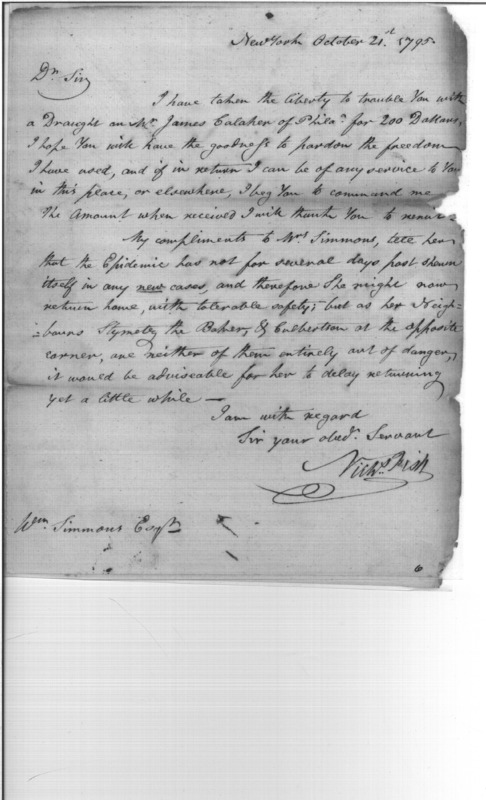 New York October 21st. 1795.
Dr. Sir
I have taken the liberty to trouble You with
a Draught on Mr. James Calaher of Phila. for 200 Dollars,
I hope You will have the goodness to pardon the freedom
I have used, and if in return I can be of any service to You
in this place, or elsewhere, I beg You to command me
The Amount when received I will thank You to remit—
My compliments to Mrs. Simmons, tell her
that the Epidemic has not for several days past shewn
itself in any new cases, and therefore She might now
return home, with tolerable safety; but as her Neigh=
=bours Stymets, the Baker, & Culbertson at the opposite
corner, are neither of them entirely out of danger,
it would be adviseable for her to delay returning
yet a little while —
I am with regard
Sir your obed. Servant
Nichs. Fish
Wm Simmons Esqr.
6